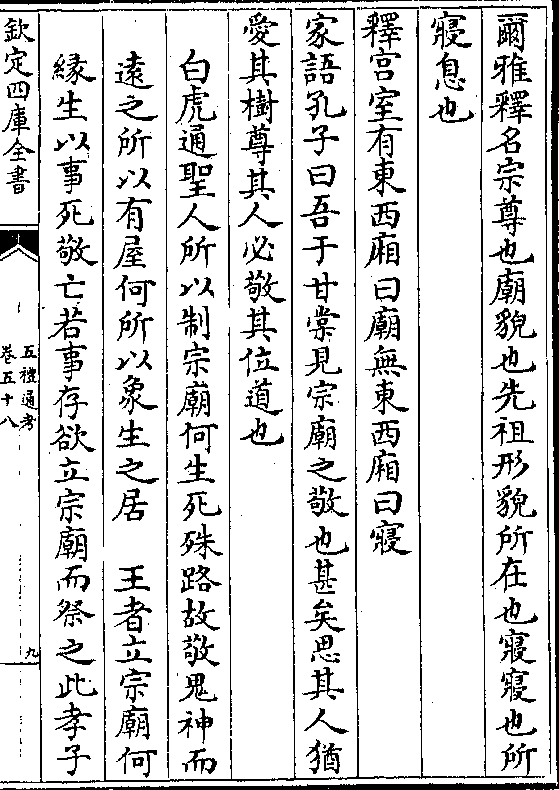 爾雅釋名宗尊也廟貌也先祖形貌所在也寢寢也所
寢息也
釋宫室有東西廂曰廟無東西廂曰寢
家語孔子曰吾于甘棠見宗廟之敬也甚矣思其人猶
愛其樹尊其人必敬其位道也
白虎通聖人所以制宗廟何生死殊路故敬鬼神而
遠之所以有屋何所以象生之居　王者立宗廟何
緣生以事死敬亡若事存欲立宗廟而祭之此孝子
欽定四庫全書
五禮通考
卷五十八
九